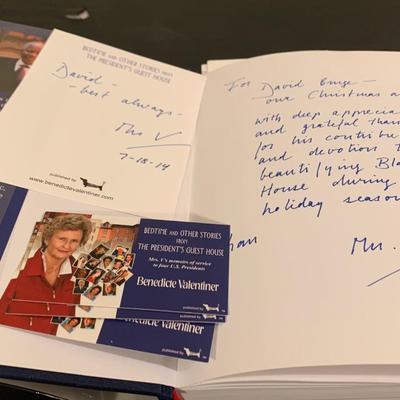 BEDTIME AND OTHER STORIES FROM
THE PRESIDENT'S GUEST HOUSE
David -
- best always -
Mrs V
7-18-14
published by
www.benedictevalentiner.com
For David
our Christmas
with deep
and grateful
for his
and devotion
beautifying
House during
holiday
Mrs.
BEDTIME AND OTHER STORIES
FROM
THE PRESIDENT'S GUEST HOUSE
Mrs. V's memoirs of service
to four U.S. Presidents
Benedicte Valentiner
published by
Benedicte Valentiner
published by